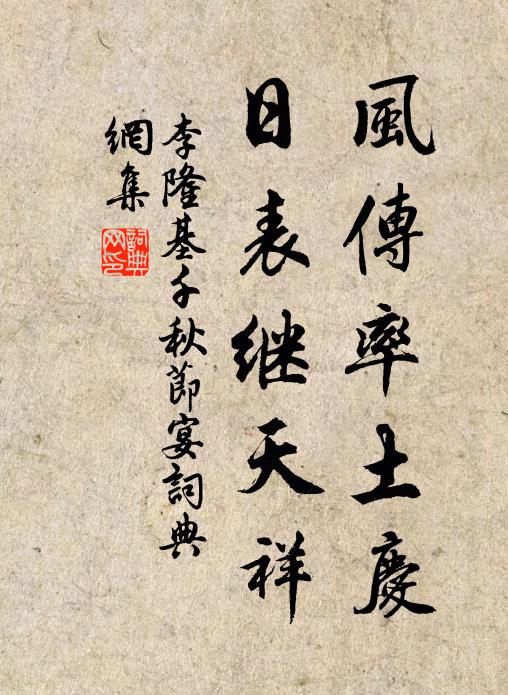 風傳率土慶
日表继天祥
李隆基千秋節宴詞典
網集
詞典
网印